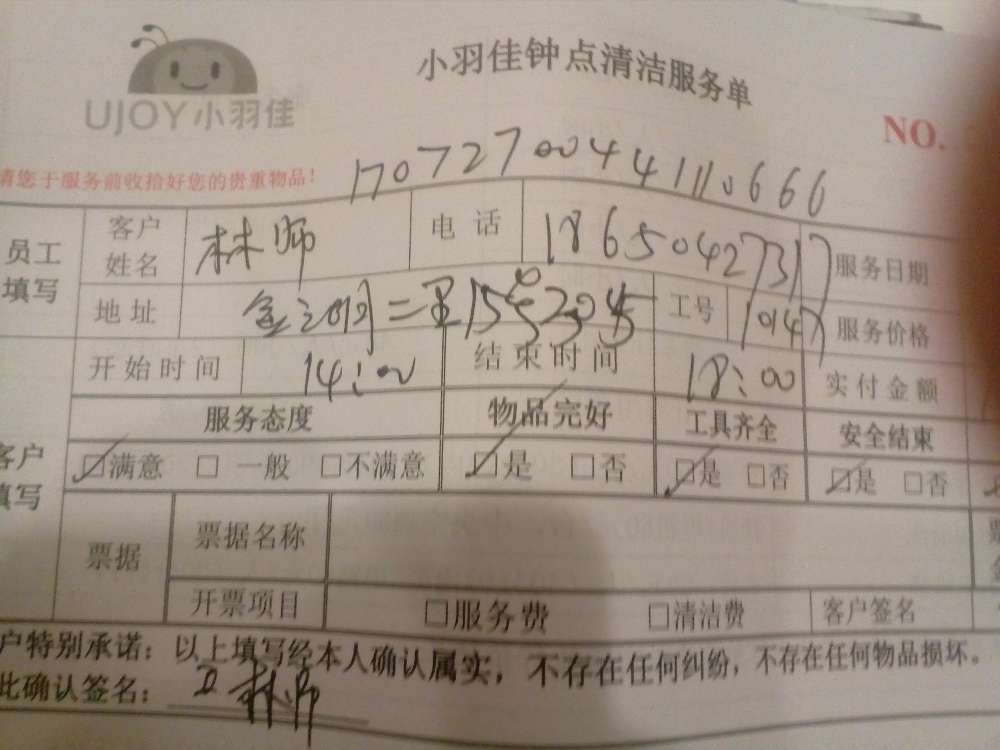 UJOY小羽佳
小羽佳钟点清洁服务单
NO.
请您于服务前收拾好您的贵重物品!
17072700441110666
员工填写 客户姓名 林师 电话 18650427317 服务日期
地址 二里15号 工号 1014 服务价格
开始时间 14:00 结束时间 18:00 实付金额
服务态度 物品完好 工具齐全 安全结束
客户填写 □满意 □一般 □不满意 □是 □否 □是 □否 □是 □否
票据 票据名称
开票项目 □服务费 □清洁费 客户签名
户特别承诺：以上填写经本人确认属实，不存在任何纠纷，不存在任何物品损坏。
此确认签名： 林师